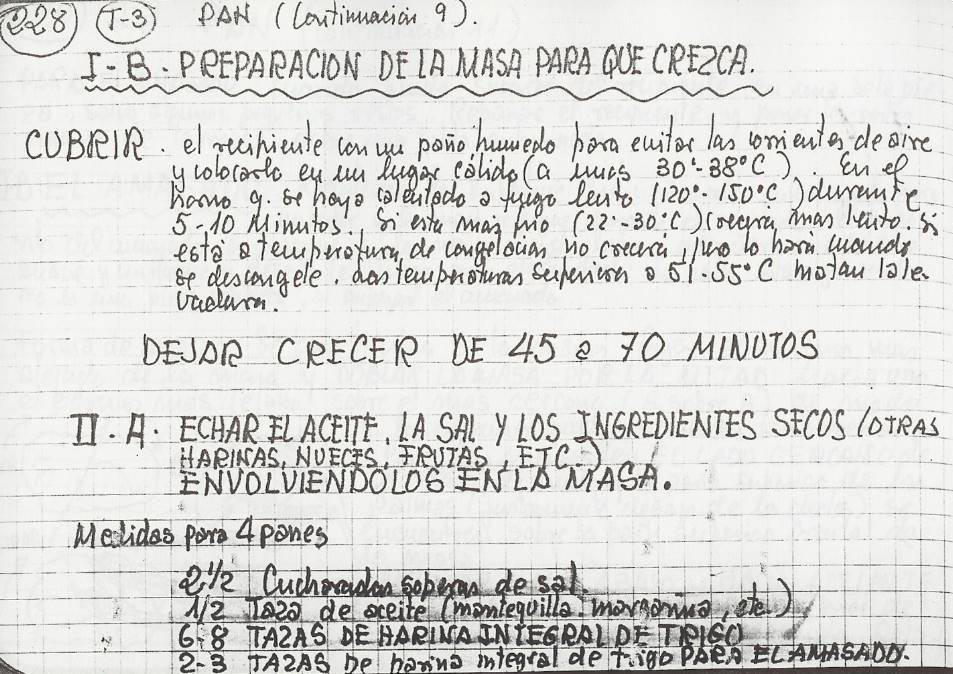 228 T-3 PAN (Continuación 9).
I-B. PREPARACION DE LA MASA PARA QUE CREZCA.
CUBRIR. el recipiente con un paño húmedo para evitar las corrientes de aire
y colocarlo en un lugar cálido (a unos 30°-38°C). En el
horno q. se haya calentado a fuego lento (120°-150°C) durante
5-10 Minutos. Si esta mas frio (22°-30°C) crecera mas lento. Si
está a temperatura de congelacion no crecerá, pero lo hará cuando
se descongele. Las temperaturas superiores a 51-55°C matan la le-
vadura.
DEJAR CRECER DE 45 a 70 MINUTOS
II.A. ECHAR EL ACEITE, LA SAL Y LOS INGREDIENTES SECOS (OTRAS
HARINAS, NUECES, FRUTAS, ETC.)
ENVOLVIENDOLOS EN LA MASA.
Medidas para 4 panes
2 1/2 Cucharadas soperas de sal
1/2 Taza de aceite (mantequilla, margarina, etc)
6-8 TAZAS DE HARINA INTEGRAL DE TRIGO
2-3 TAZAS DE harina integral de trigo PARA EL AMASADO.